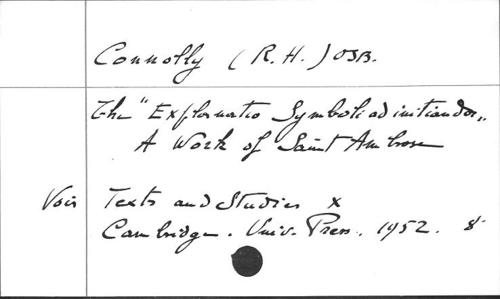 Connolly (R.H.) OSB.
The "Explanatio Symboli ad initiandos„
A Work of Saint Ambrose
Voir Texts and Studies X
Cambridge. Univ. Press. 1952. 8°